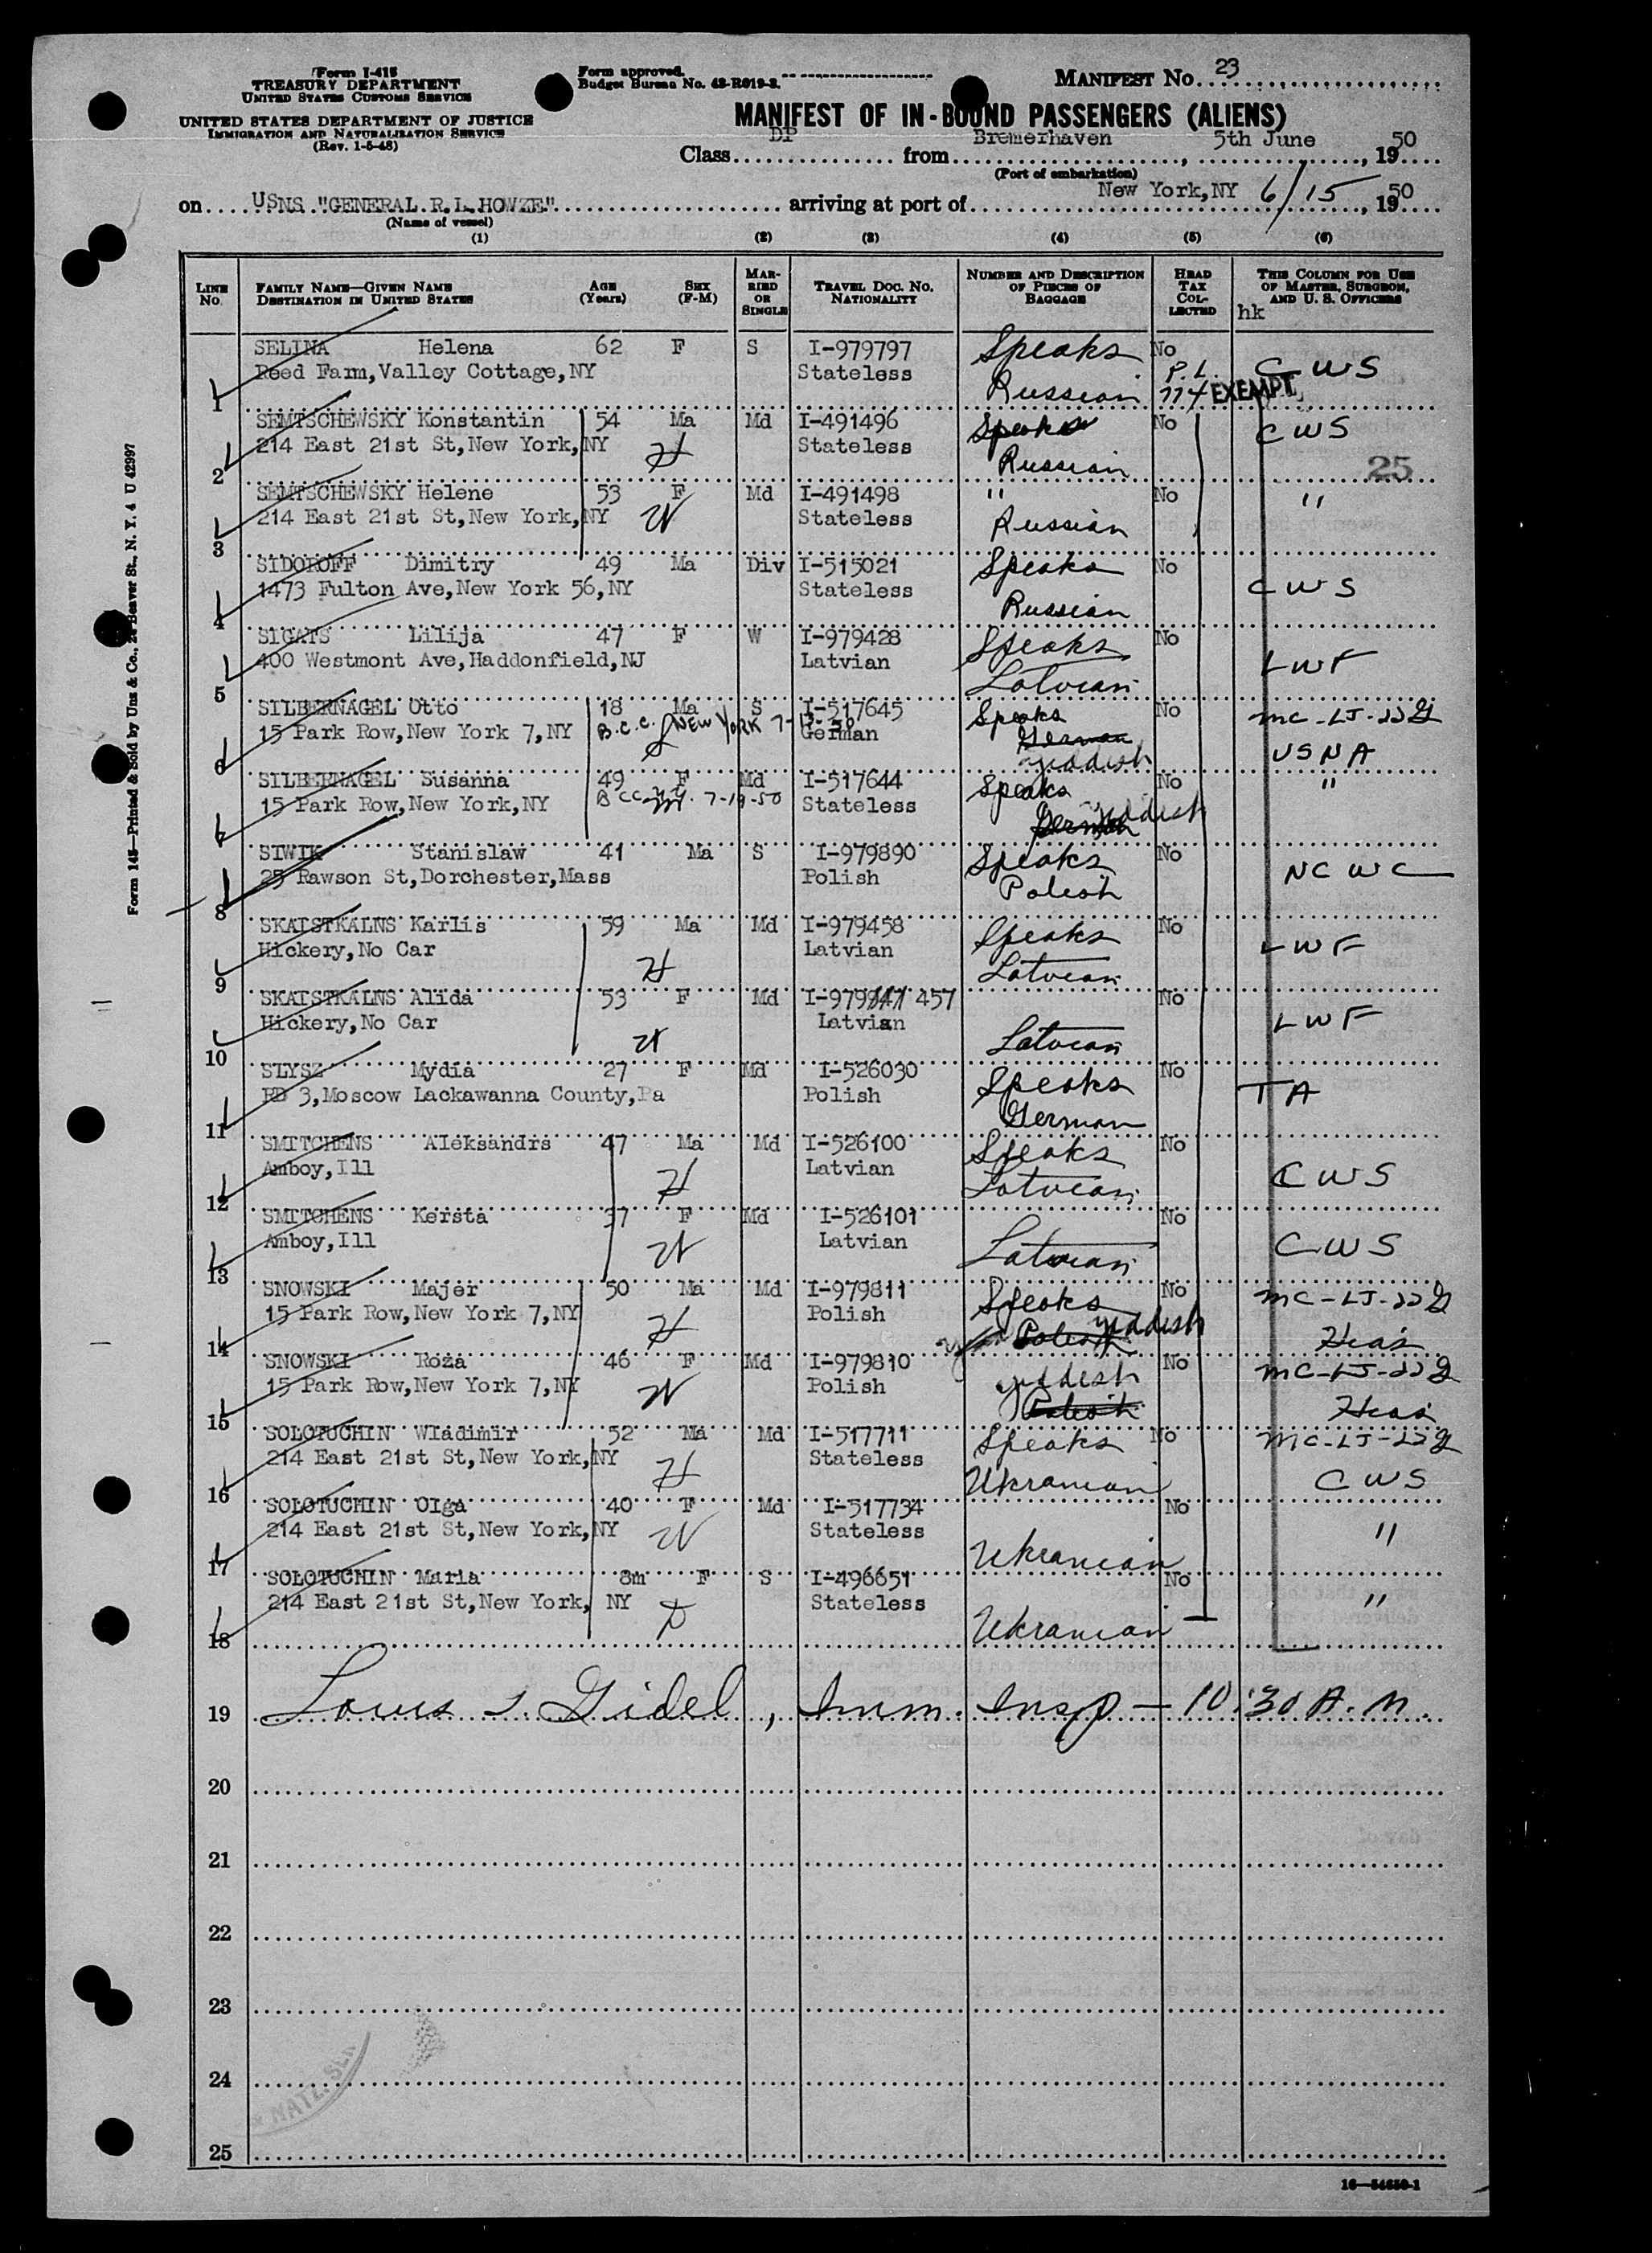 Form I-415
TREASURY DEPARTMENT
UNITED STATES CUSTOMS SERVICE
UNITED STATES DEPARTMENT OF JUSTICE
IMMIGRATION AND NATURALIZATION SERVICE
(Rev. 1-5-48)
Form approved.
Budget Bureau No. 43-R019-3.
MANIFEST No. 23
MANIFEST OF IN-BOUND PASSENGERS (ALIENS)
Class DP from Bremerhaven, 5th June, 1950
(Port of embarkation)
on USNS "GENERAL R.L.HOWZE" arriving at port of New York,NY 6/15, 1950
(Name of vessel)
(1) (2) (3) (4) (5) (6)
LINE No. FAMILY NAME—GIVEN NAME DESTINATION IN UNITED STATES AGE (Years) SEX (F-M) MARRIED OR SINGLE TRAVEL DOC. NO. NATIONALITY NUMBER AND DESCRIPTION OF PIECES OF BAGGAGE HEAD TAX COLLECTED THIS COLUMN FOR USE OF MASTER, SURGEON, AND U. S. OFFICERS
hk
SELINA Helena 62 F S I-979797 Speaks No
Reed Farm,Valley Cottage,NY Stateless Russian P.L. 774 EXEMPT CWS
1
SEMTSCHEWSKY Konstantin 54 Ma Md I-491496 Speaks No CWS
214 East 21st St,New York,NY H Stateless Russian 25
2
SEMTSCHEWSKY Helene 53 F Md I-491498 " No "
214 East 21st St,New York,NY W Stateless Russian
3
SIDOROFF Dimitry 49 Ma Div I-515021 Speaks No
1473 Fulton Ave,New York 56,NY Stateless Russian CWS
4
SIGATS Lilija 47 F W I-979428 Speaks No
400 Westmont Ave,Haddonfield,NJ Latvian Latvian LWF
5
SILBERNAGEL Otto 18 Ma S I-517645 Speaks No
15 Park Row,New York 7,NY B.C.C. NEW YORK German German Yiddish USNA
6
SILBERNAGEL Susanna 49 F Md I-517644 Speaks No "
15 Park Row,New York,NY BCC 7-19-50 Stateless German Yiddish
7
SIWIK Stanislaw 41 Ma S I-979890 Speaks No
25 Rawson St,Dorchester,Mass Polish Polish NCWC
8
SKAISTKALNS Karlis 59 Ma Md I-979458 Speaks No
Hickery,No Car H Latvian Latvian LWF
9
SKAISTKALNS Alida 53 F Md I-979 457 No
Hickery,No Car W Latvian Latvian LWF
10
SLYSZ Mydia 27 F Md I-526030 Speaks No
RD 3,Moscow Lackawanna County,Pa Polish German TA
11
SMITCHENS Aleksandrs 47 Ma Md I-526100 Speaks No
Amboy,Ill H Latvian Latvian CWS
12
SMITCHENS Kersta 37 F Md I-526101 No
Amboy,Ill W Latvian Latvian CWS
13
SNOWSKI Majer 50 Ma Md I-979811 Speaks No
15 Park Row,New York 7,NY H Polish Polish Yiddish Hias
14
SNOWSKI Roza 46 F Md I-979810 Yiddish No
15 Park Row,New York 7,NY W Polish Polish Hias
15
SOLOTUCHIN Wladimir 52 Ma Md I-517711 Speaks No
214 East 21st St,New York,NY H Stateless Ukranian CWS
16
SOLOTUCHIN Olga 40 F Md I-517734 No
214 East 21st St,New York,NY W Stateless Ukranian "
17
SOLOTUCHIN Maria 8m F S I-496651 No
214 East 21st St,New York, NY D Stateless Ukranian "
18
19 Louis S. Gidel, Imm. Insp — 10:30 A.M.
20
21
22
23
24
25
16—54650-1
Form 145—Printed & Sold by Unz & Co., 24 Beaver St., N. Y. 4 U 42997